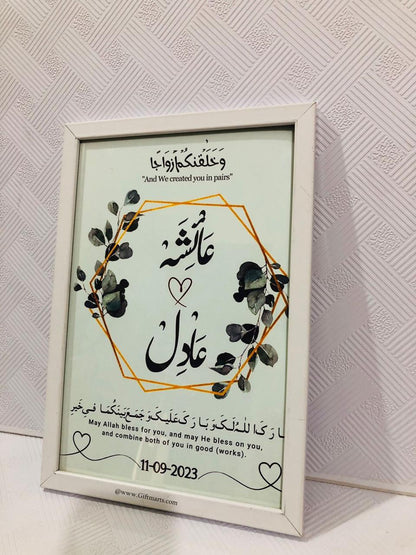 وَخَلَقْنٰكُمْ أَزْوَاجًا
"And We created you in pairs"
عَائِشَه
عَادِل
بَارَكَ اللهُ لَكَ وَبَارَكَ عَلَيْكَ وَجَمَعَ بَيْنَكُمَا فِي خَيْر
May Allah bless for you, and may He bless on you,
and combine both of you in good (works).
11-09-2023
@www.Giftmarts.com